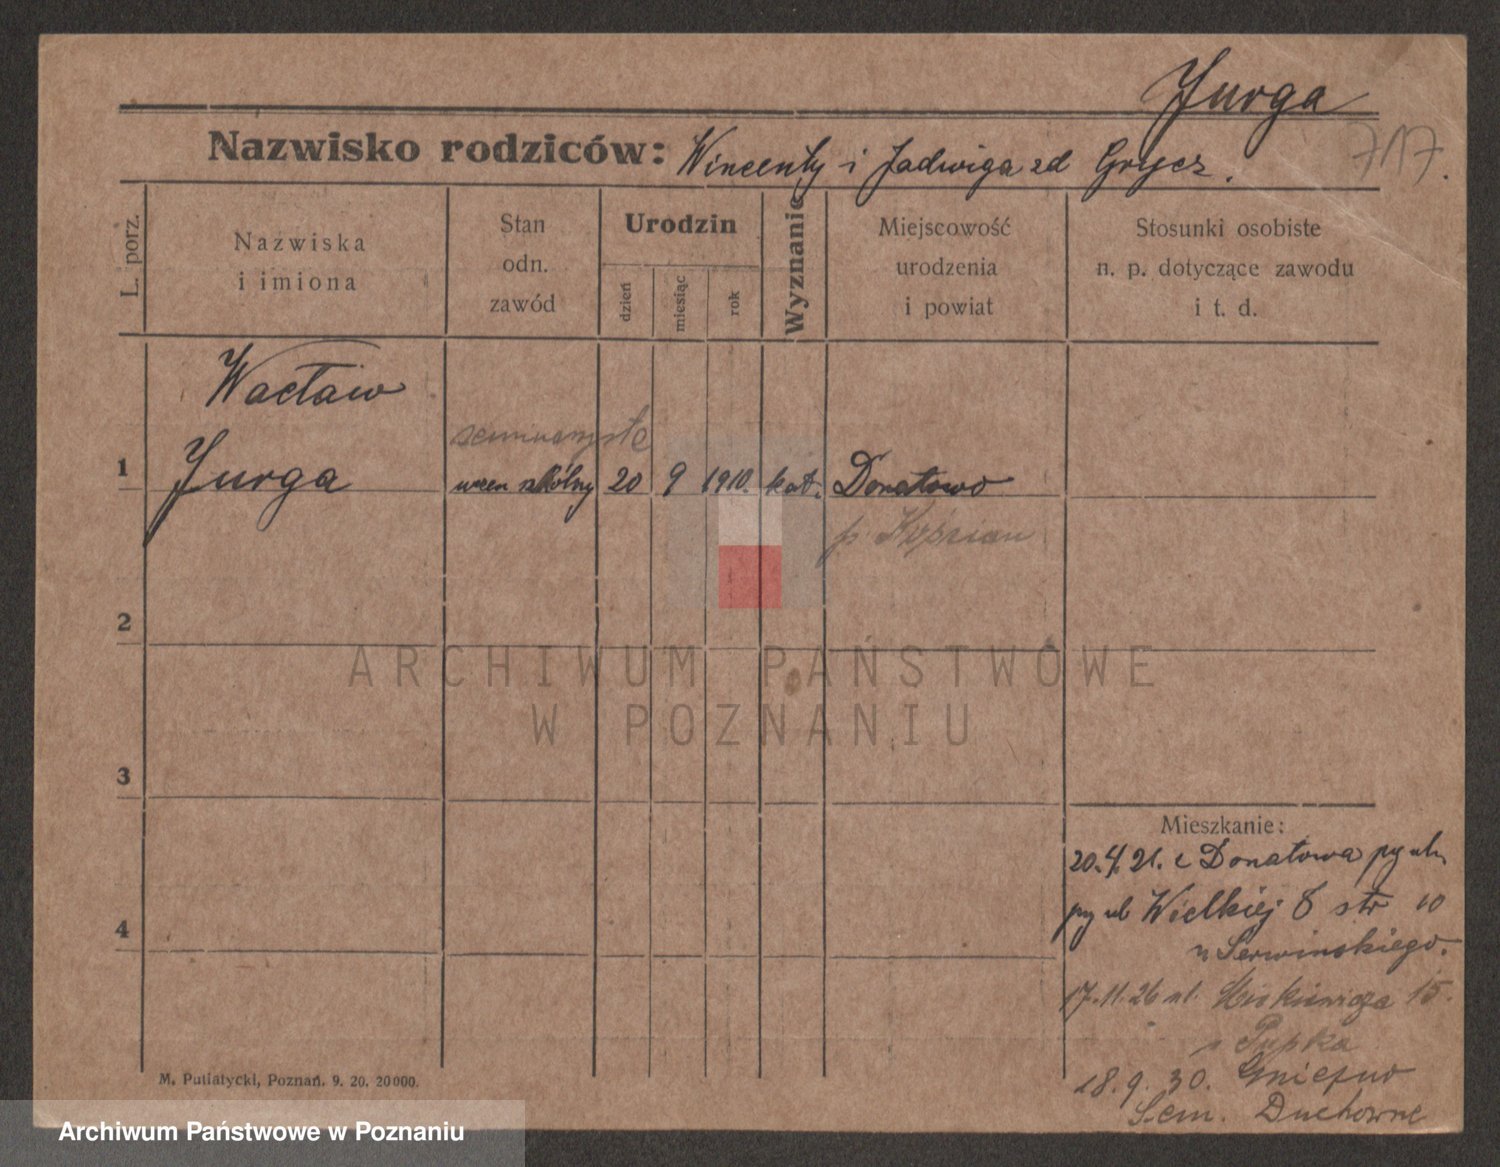 Jurga
717.
Nazwisko rodziców: Wincenty i Jadwiga zd Grycz.
L. porz.
Nazwiska
i imiona
Stan
odn.
zawód
Urodzin
dzień
miesiąc
rok
Wyznanie
Miejscowość
urodzenia
i powiat
Stosunki osobiste
n. p. dotyczące zawodu
i t. d.
Wacław
seminarzysta
1 Jurga uczen szkólny 20 9 1910. kat. Donatowo
p.
2
ARCHIWUM PAŃSTWOWE
W POZNANIU
3
Mieszkanie:
20.4.21. z Donatowa
4 Wielkiej 8 str 10
u Serwinskiego.
17.11.26 ul. Mickiewicza 15.
u Pupka
18.9.30. Gniezno
Sem. Duchowne
M. Putiatycki, Poznań. 9. 20. 20000.
Archiwum Państwowe w Poznaniu